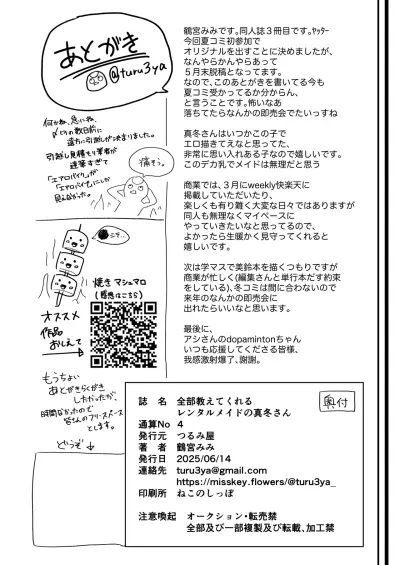 あとがき
@turu3ya
何かね、急にね、
〆切の数日前に
遠方に引越しが決まりました。
引越し見積もり業者が
達筆すぎて
「エアロバイク」が
「エアロバイブ」にしか
見えなかった。
痛そう。
焼きマシュマロ
(感想はこちら)
オススメ
作品
おしえて
もうちょい
あとがきらくがき
したかったが、
時間なかったので
皆さんのフリースペース
とします。
どうぞ↓
鶴宮みみです。同人誌3冊目です。ﾔｯﾀｰ
今回夏コミ初参加で
オリジナルを出すことに決めましたが、
なんやらかんやらあって
5月末脱稿となってます。
なので、このあとがきを書いてる今も
夏コミ受かってるか分からん、
と言うことです。怖いなあ
落ちてたらなんかの即売会でたいっすね
真冬さんはいつかこの子で
エロ描きてえなと思ってた、
非常に思い入れある子なので嬉しいです。
このデカ乳でメイドは無理だと思う
商業では、3月にweekly快楽天に
掲載していただいたり、
楽しくも有り難く大変な日々ではありますが
同人も無理なくマイペースに
やっていきたいなと思ってるので、
よかったら生暖かく見守ってくれると
嬉しいです。
次は学マスで美鈴本を描くつもりですが
商業が忙しく(編集さんと単行本だす約束
をしている)、冬コミは間に合わないので
来年のなんかの即売会に
出れたらいいなと思います。
最後に、
アシさんのdopamintonちゃん
いつも応援してくださる皆様、
我感激射爆了、謝謝。
奥付
誌　名　全部教えてくれる
レンタルメイドの真冬さん
通算No　4
発行元　つるみ屋
著　者　鶴宮みみ
発行日　2025/06/14
連絡先　turu3ya@gmail.com
https://misskey.flowers/@turu3ya_
印刷所　ねこのしっぽ
注意喚起　オークション・転売禁
全部及び一部複製及び転載、加工禁